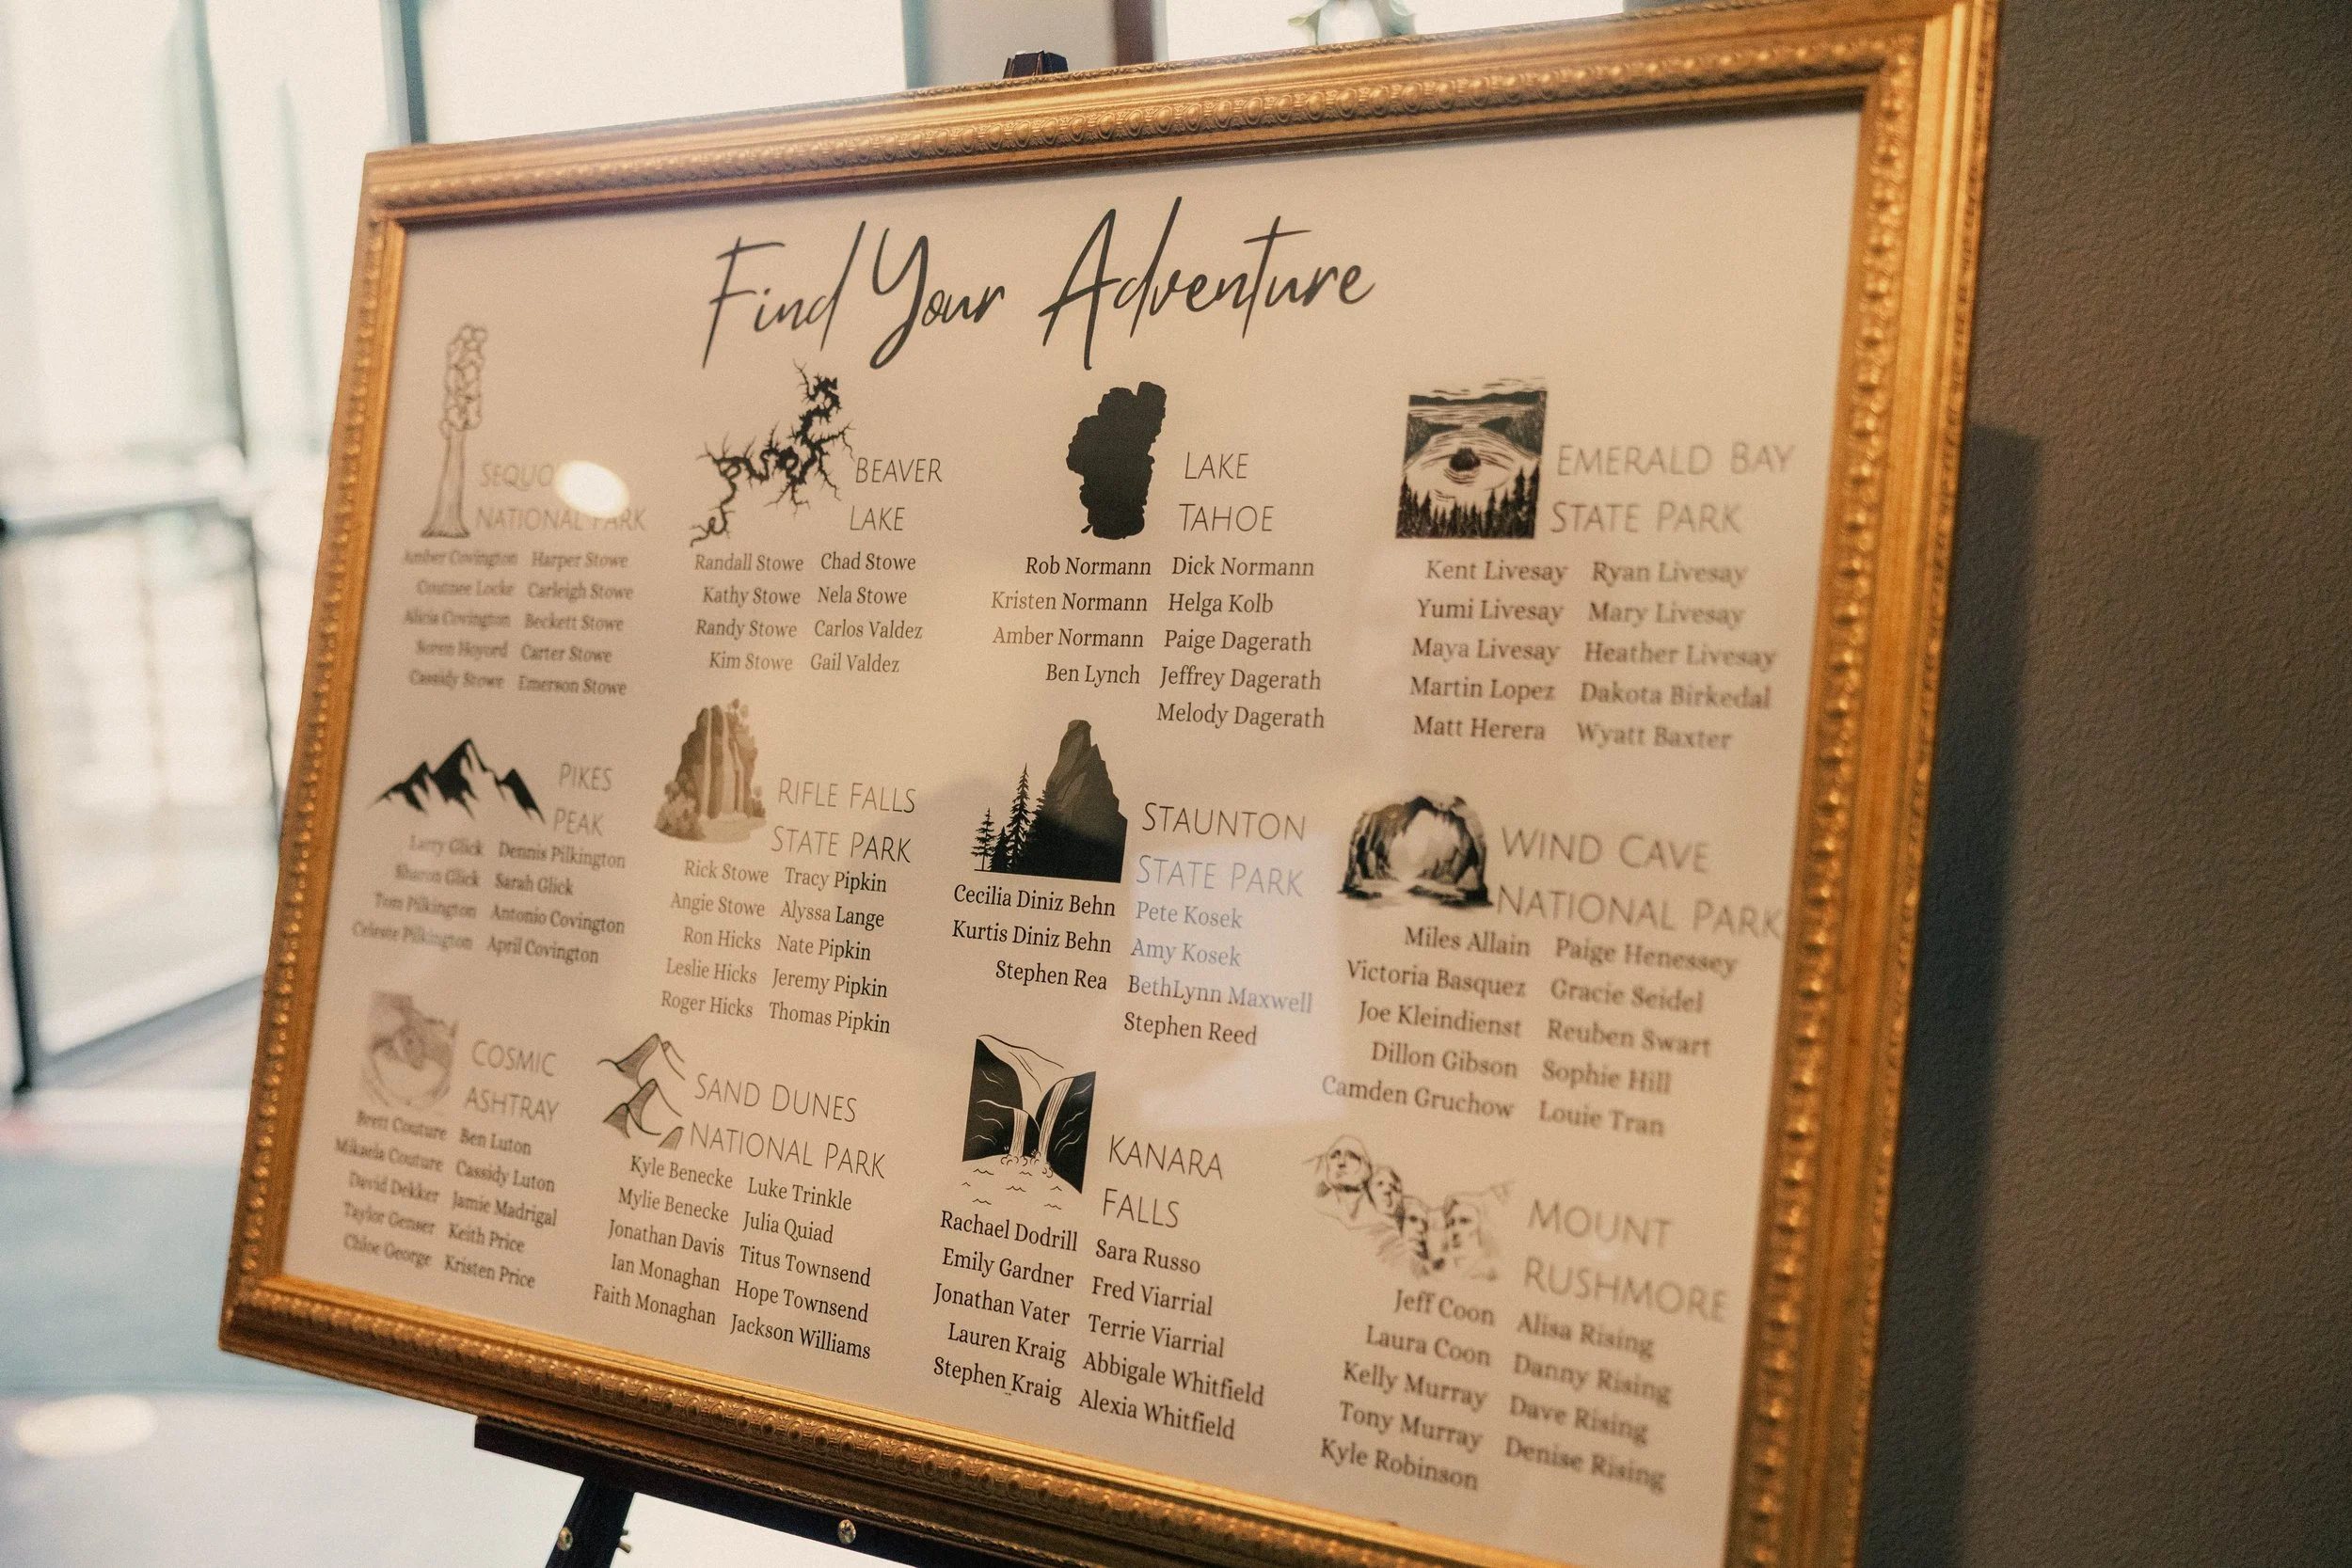 Find Your Adventure
SEQUO
NATIONAL PARK
Amber Covington Harper Stowe
Locke Carleigh Stowe
Alicia Covington Beckett Stowe
Carter Stowe
Cassidy Stowe Emerson Stowe
BEAVER
LAKE
Randall Stowe Chad Stowe
Kathy Stowe Nela Stowe
Randy Stowe Carlos Valdez
Kim Stowe Gail Valdez
LAKE
TAHOE
Rob Normann Dick Normann
Kristen Normann Helga Kolb
Amber Normann Paige Dagerath
Ben Lynch Jeffrey Dagerath
Melody Dagerath
EMERALD BAY
STATE PARK
Kent Livesay Ryan Livesay
Yumi Livesay Mary Livesay
Maya Livesay Heather Livesay
Martin Lopez Dakota Birkedal
Matt Herera Wyatt Baxter
PIKES
PEAK
Larry Glick Dennis Pilkington
Sharon Glick Sarah Glick
Tom Pilkington Antonio Covington
Celeste Pilkington April Covington
RIFLE FALLS
STATE PARK
Rick Stowe Tracy Pipkin
Angie Stowe Alyssa Lange
Ron Hicks Nate Pipkin
Leslie Hicks Jeremy Pipkin
Roger Hicks Thomas Pipkin
STAUNTON
STATE PARK
Cecilia Diniz Behn Pete Kosek
Kurtis Diniz Behn Amy Kosek
Stephen Rea BethLynn Maxwell
Stephen Reed
WIND CAVE
NATIONAL PARK
Miles Allain Paige Henessey
Victoria Basquez Gracie Seidel
Joe Kleindienst Reuben Swart
Dillon Gibson Sophie Hill
Camden Gruchow Louie Tran
COSMIC
ASHTRAY
Brett Couture Ben Luton
Mikaela Couture Cassidy Luton
David Dekker Jamie Madrigal
Taylor Genser Keith Price
Chloe George Kristen Price
SAND DUNES
NATIONAL PARK
Kyle Benecke Luke Trinkle
Mylie Benecke Julia Quiad
Jonathan Davis Titus Townsend
Ian Monaghan Hope Townsend
Faith Monaghan Jackson Williams
KANARA
FALLS
Rachael Dodrill Sara Russo
Emily Gardner Fred Viarrial
Jonathan Vater Terrie Viarrial
Lauren Kraig Abbigale Whitfield
Stephen Kraig Alexia Whitfield
MOUNT
RUSHMORE
Jeff Coon Alisa Rising
Laura Coon Danny Rising
Kelly Murray Dave Rising
Tony Murray Denise Rising
Kyle Robinson